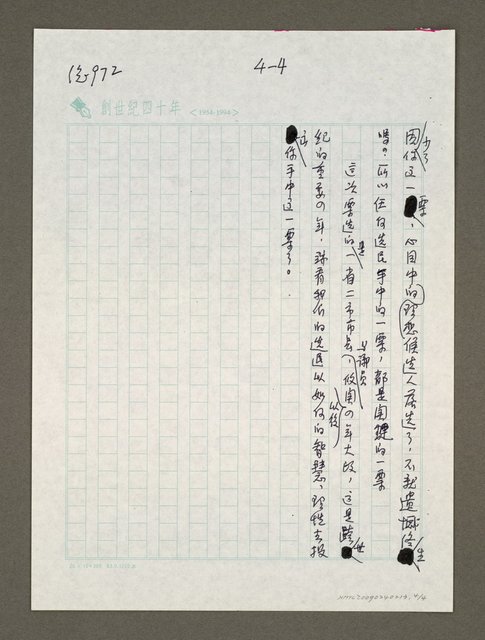 後972
4-4
創世紀四十年 <1954-1994>
因你少了這一票，心目中的理想候選人落選了，不就遺憾終生
嗎？所以任何選民手中的一票，都是關鍵的一票
這次要選的是一省二市市長與議員，攸關以後四年大改，這是跨世
紀的重要四年，就看我們的選民以如何的智慧、理性去投
你手中這一票了。
20 × 15=300